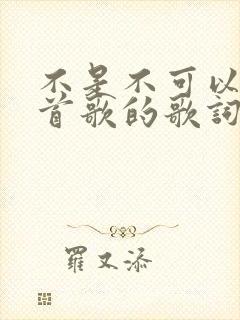 不是不可以
首歌的歌詞
羅又添